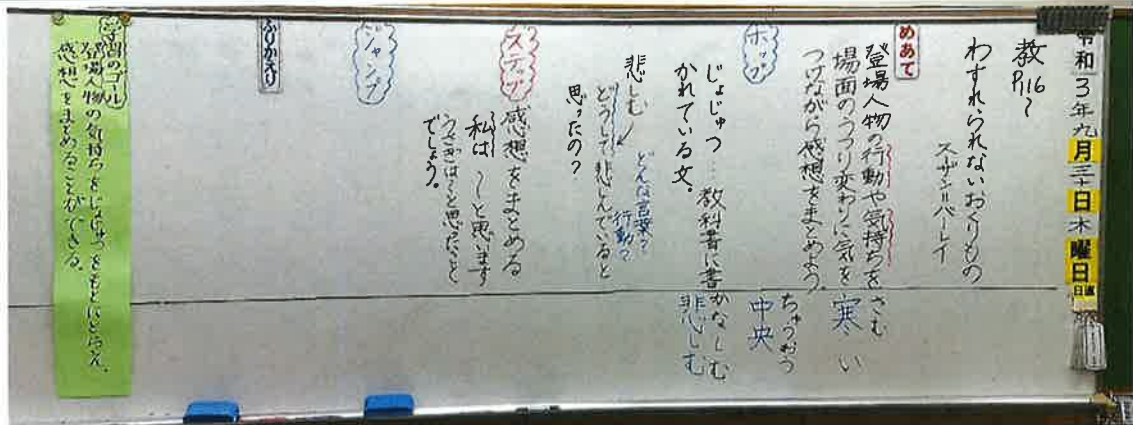 令和3年九月三十日木曜日
日直
教P.116〜
わすれられないおくりもの
スーザン=バーレイ
めあて
登場人物の行動や気持ちを
場面のうつり変わりに気を
つけながら感想をまとめよう。
さむ
寒い
ちゅうおう
中央
かなしむ
悲しむ
ホップ
じょじゅつ…教科書に書
かれている文。
悲しむ
どんな言葉？
行動？
どうして悲しんでいると
思ったの？
ステップ
感想をまとめる
私は〜と思います
うさぎは〜と思ったこと
でしょう。
ジャンプ
ふりかえり
学習のゴール
登場人物の気持ちをじょじゅつをもとにとらえ、
感想をまとめることができる。